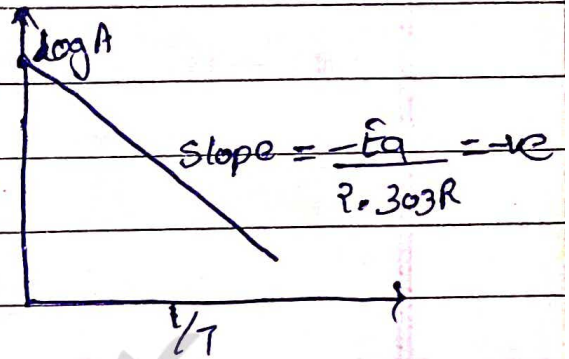 log A
Slope = -Ea / 2.303R = -ve
1/T